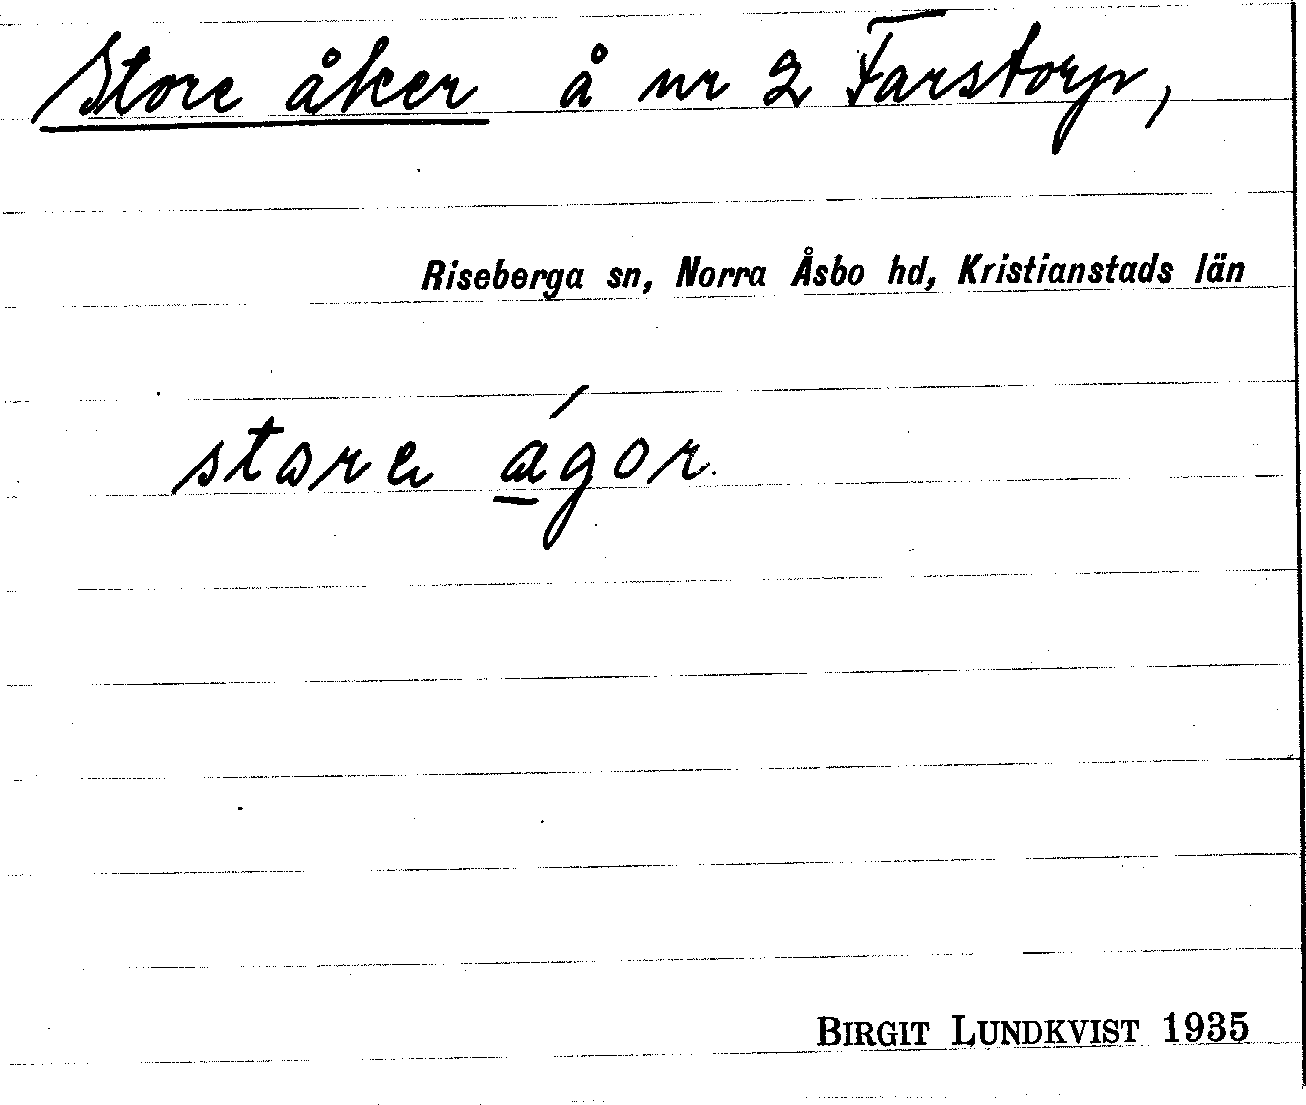 Store åker å nr 2 Farstorp,
Riseberga sn, Norra Åsbo hd, Kristianstads län
store ágor.
BIRGIT LUNDKVIST 1935